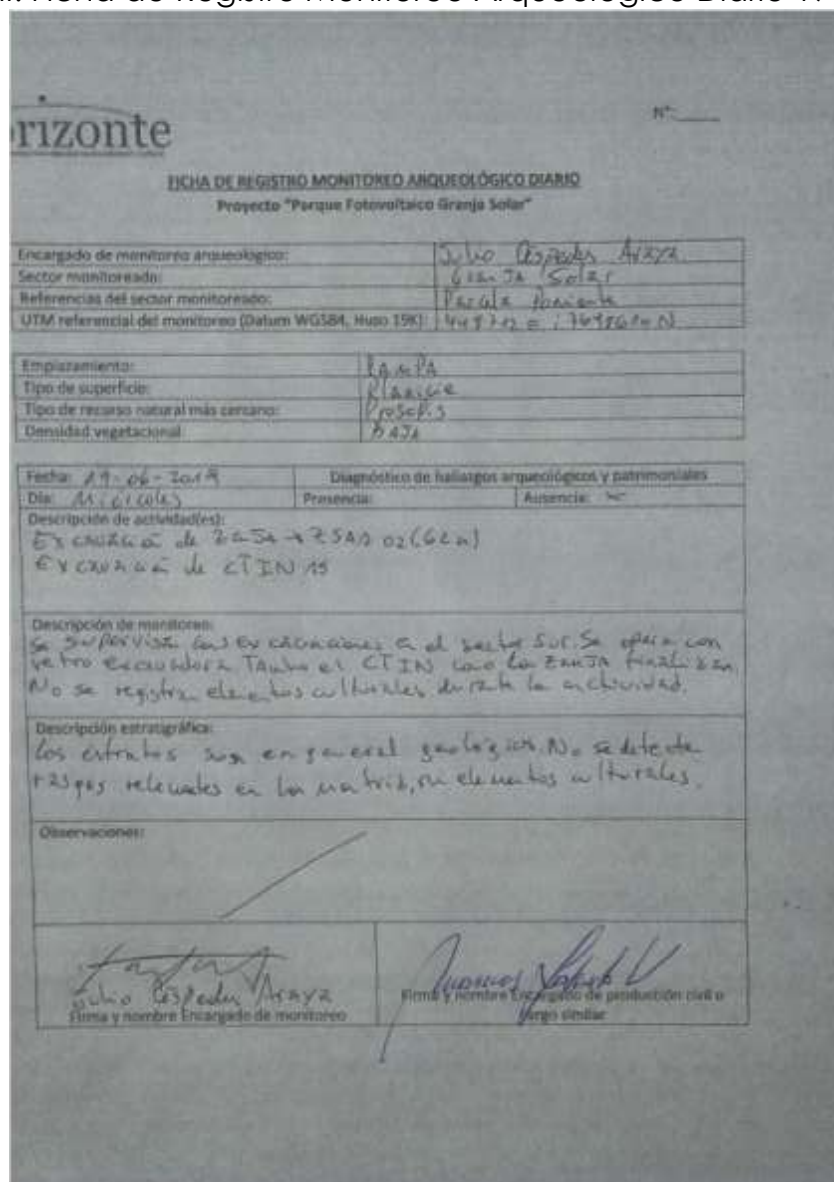 Ficha de Registro Monitoreo Arqueológico Diario
rizonte
N°:
FICHA DE REGISTRO MONITOREO ARQUEOLÓGICO DIARIO
Proyecto "Parque Fotovoltaico Granja Solar"
Encargado de monitoreo arqueológico: Julio Céspedes Araya
Sector monitoreado: Granja Solar
Referencias del sector monitoreado: Parcela Poniente
UTM referencial del monitoreo (Datum WGS84, Huso 19K):
Emplazamiento: PAMPA
Tipo de superficie: Planicie
Tipo de recurso natural más cercano: Prosopis
Densidad vegetacional: BAJA
Fecha: 19-06-2019 Diagnóstico de hallazgos arqueológicos y patrimoniales
Día: Miércoles Presencia: Ausencia:
Descripción de actividad(es):
Excavación de zanja → ZSAD 02 (62m)
Excavación de CTIN 15
Descripción de monitoreo:
Se supervisa las excavaciones en el sector Sur. Se opera con
retro excavadora Tanto el CTIN como la zanja finalizan.
No se registra elementos culturales durante la actividad.
Descripción estratigráfica:
Los estratos son en general geológicos. No se detecta
rasgos relevantes en la matriz, ni elementos culturales.
Observaciones:
Julio Céspedes Araya
Firma y nombre Encargado de monitoreo
Firma y nombre Encargado de producción civil o
cargo similar